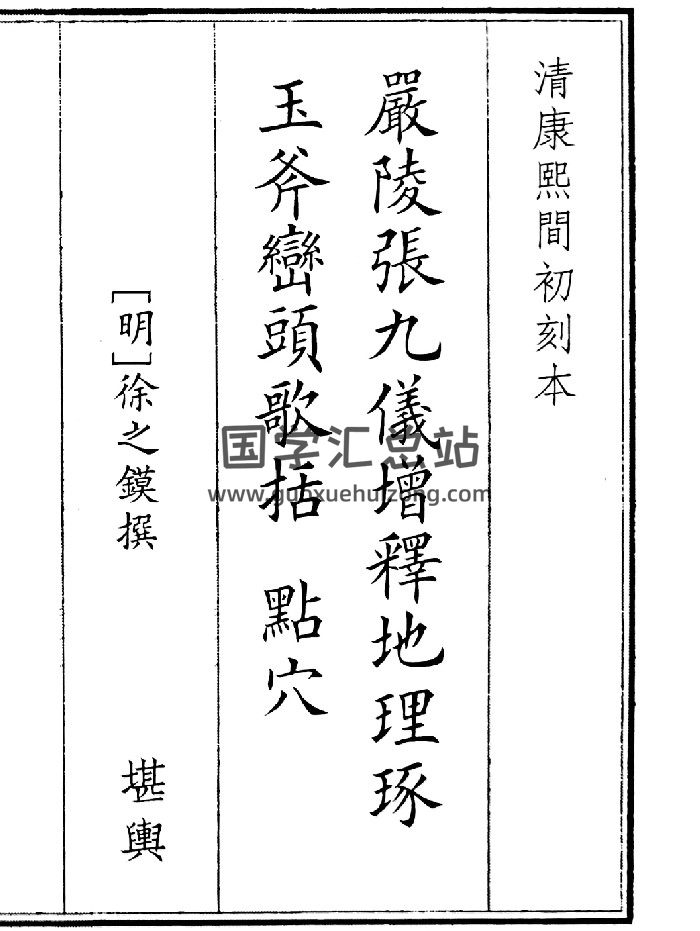 清康熙間初刻本
嚴陵張九儀增釋地理琢
玉斧巒頭歌括 點穴
[明]徐之鏌撰
堪輿
国学汇总站
www.guoxuehuizong.com